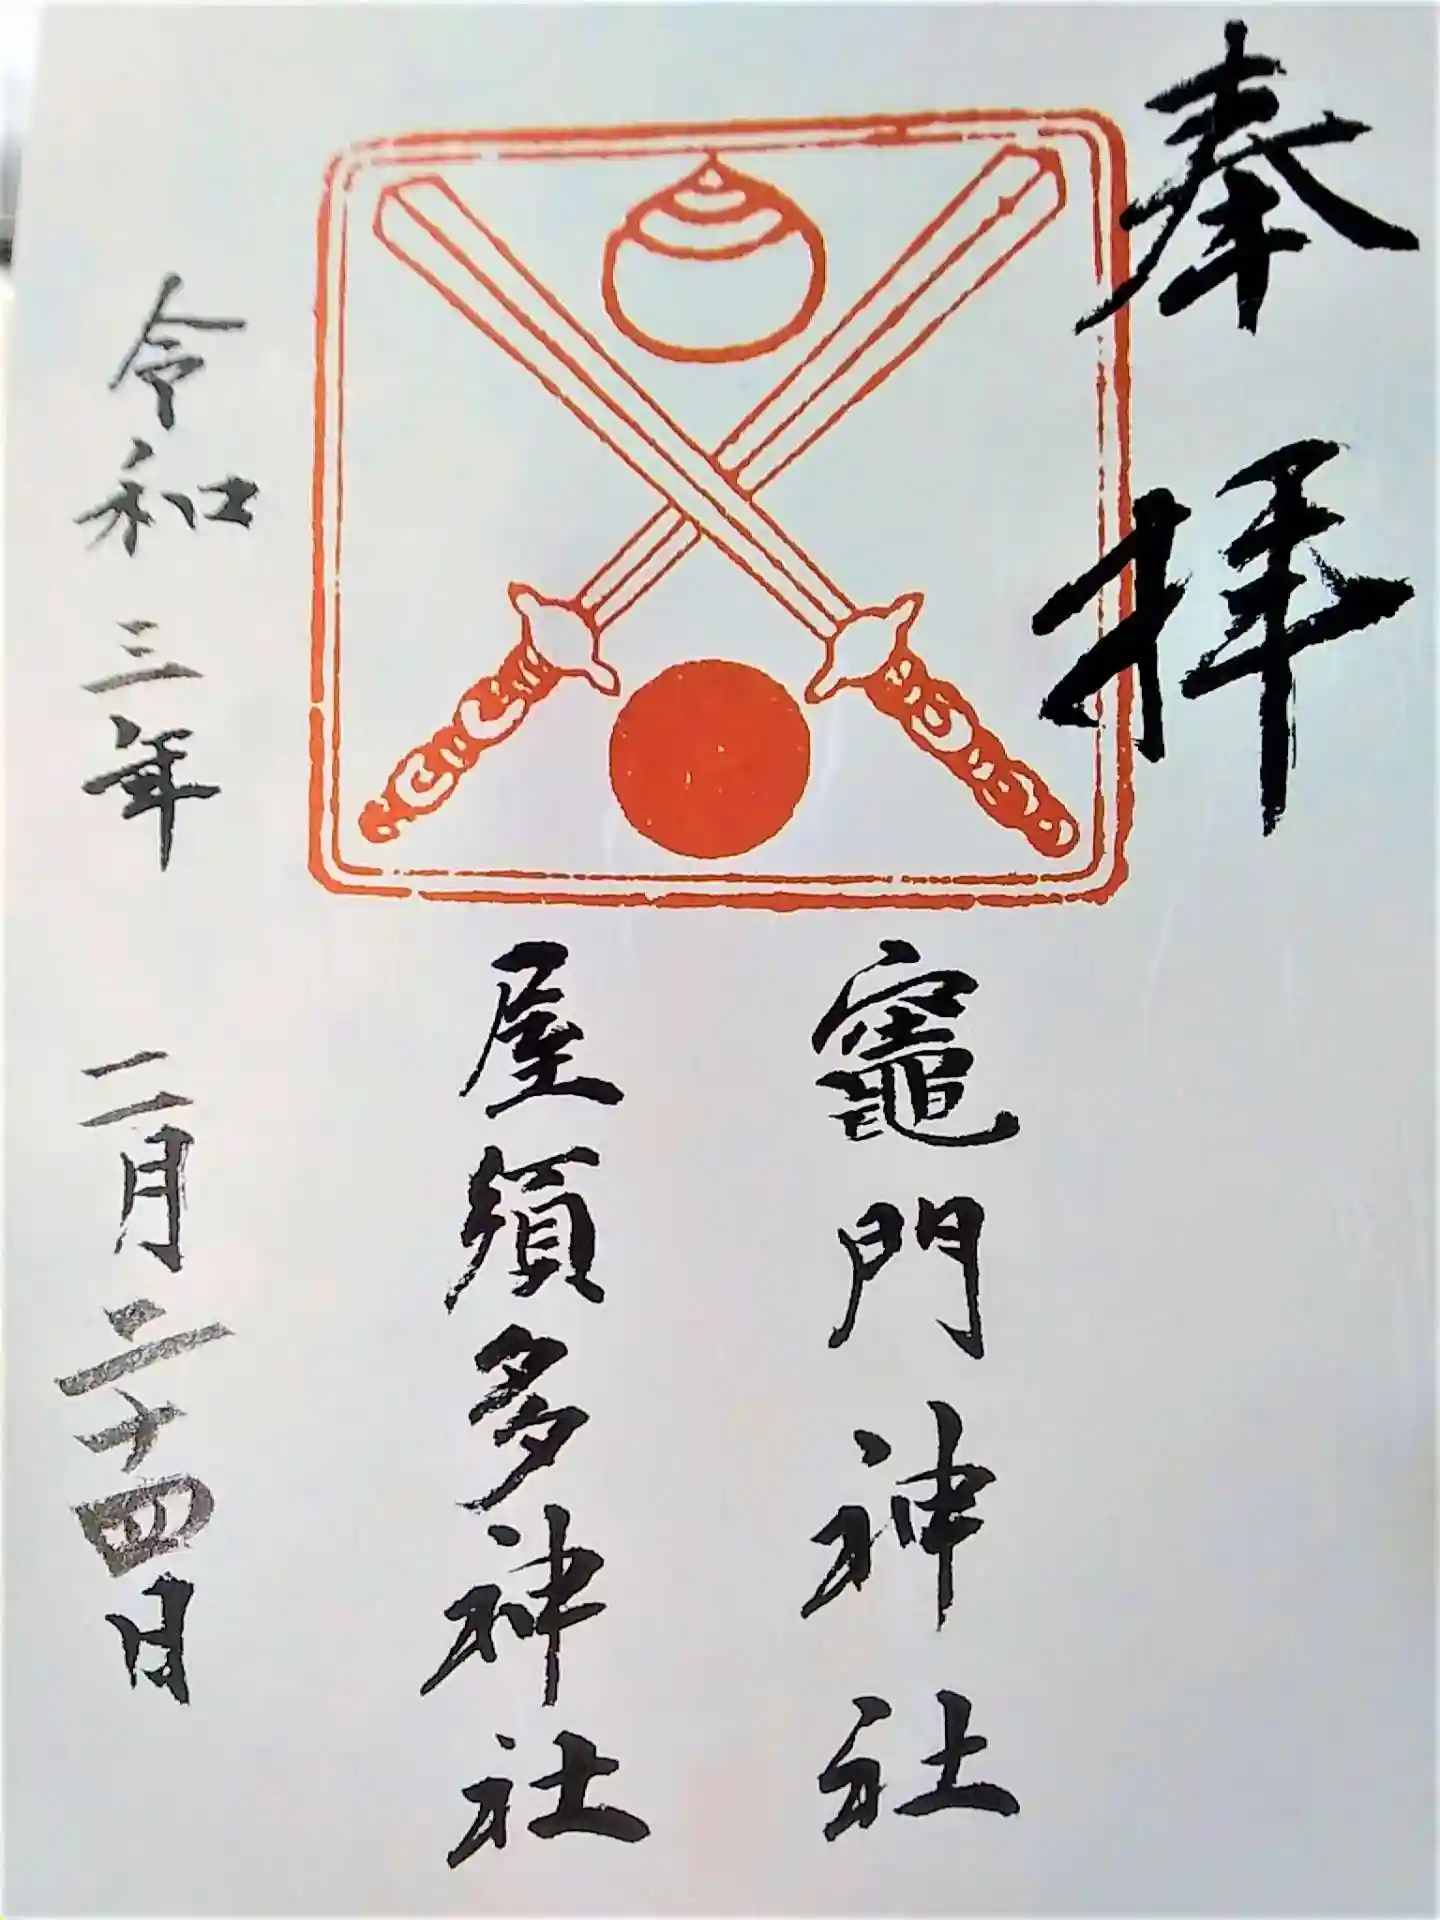 奉拝
竈門神社
屋須多神社
令和三年 二月二十四日